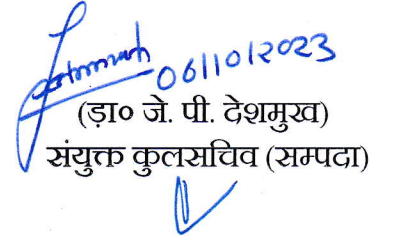 06/10/2023
(ड़ा० जे. पी. देशमुख)
संयुक्त कुलसचिव (सम्पदा)